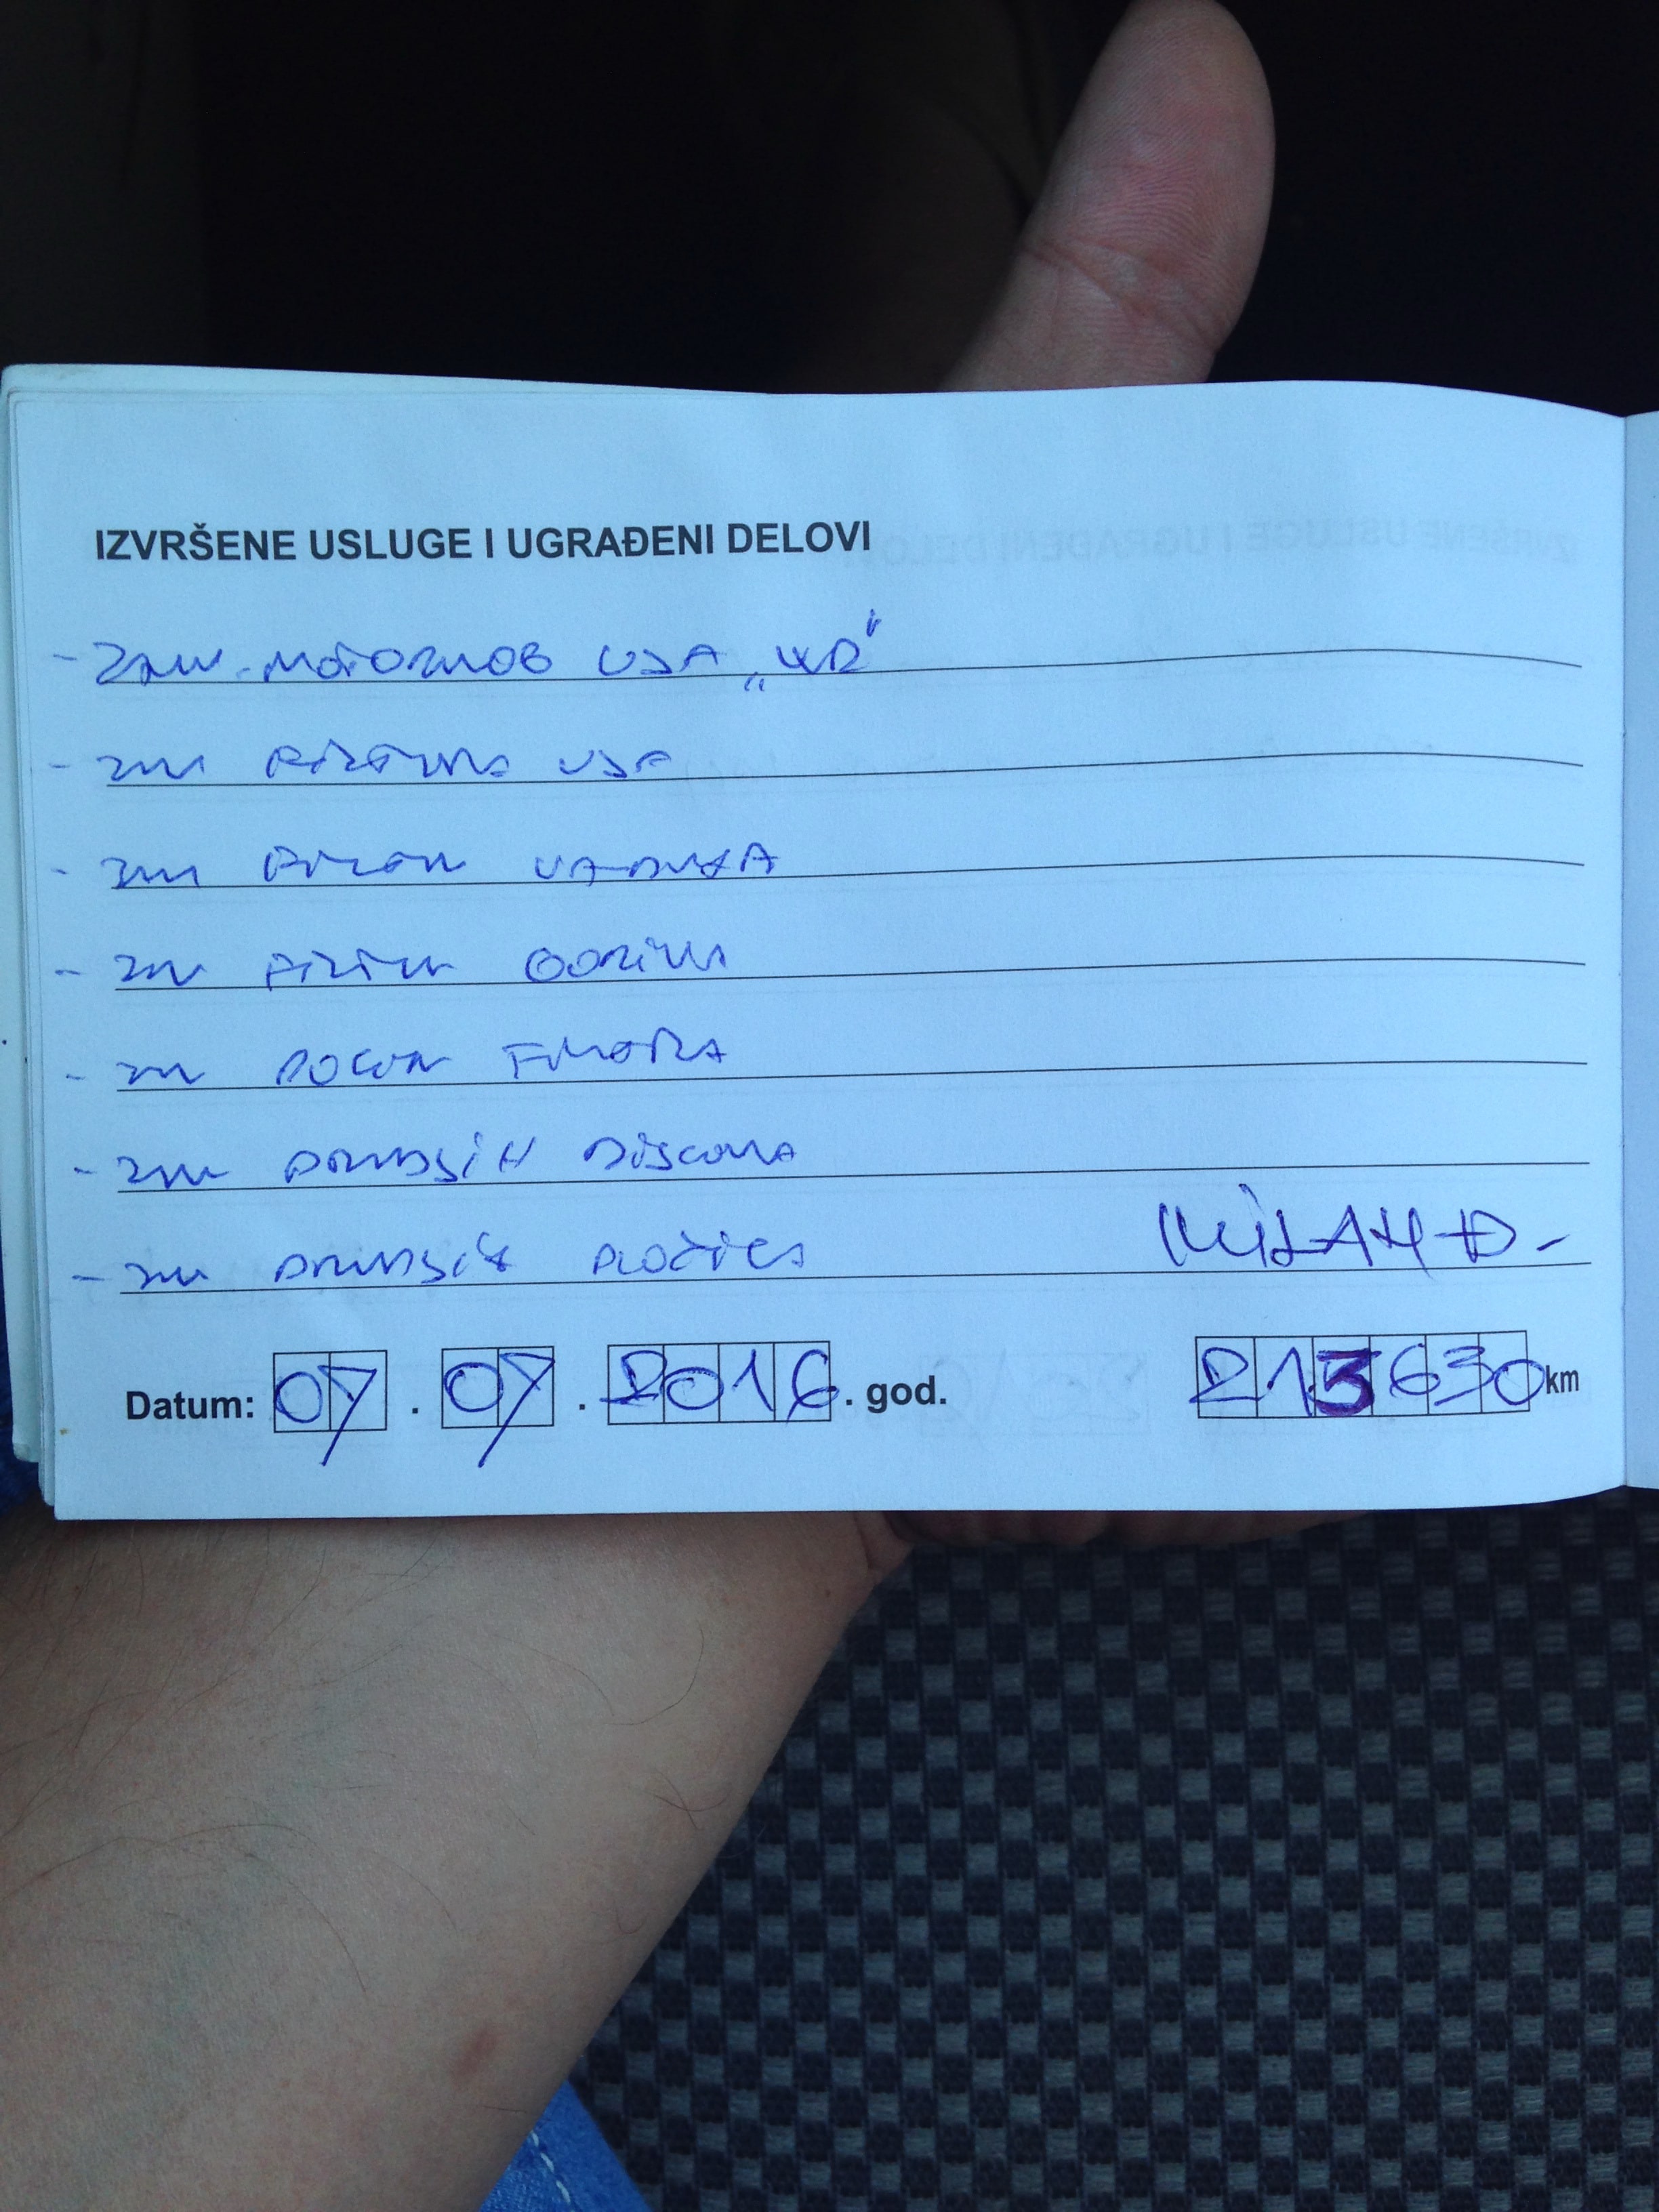 IZVRŠENE USLUGE I UGRAĐENI DELOVI
- ZAM. MOTORNOG ULJA „
- ZAM FILTERA ULJA
- ZAM FILTER VAZDUHA
- ZAM FILTER GORIVA
- ZAM POLEN FILTERA
- ZAM PREDNJIH DISKOVA
- ZAM PREDNJIH PLOČICA
MILAN Đ.
Datum: 07. 07. 2016. god. 213630 km